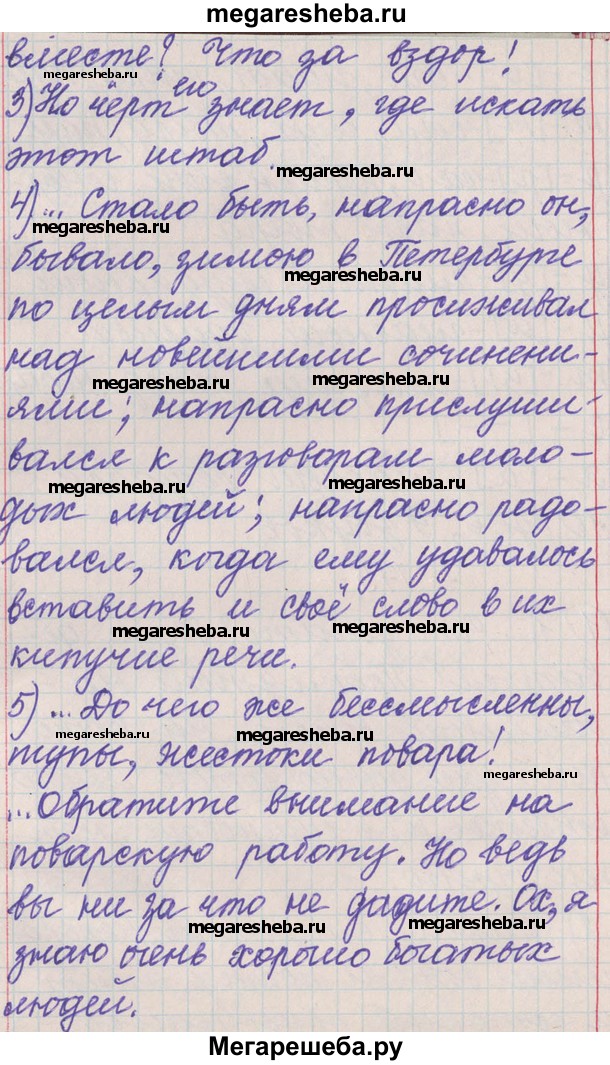 megaresheba.ru
вместе? Что за вздор!
megaresheba.ru
3) Но чёрт его знает, где искать
этот штаб.
megaresheba.ru
4) ... Стало быть, напрасно он,
megaresheba.ru
бывало, зимою в Петербурге
megaresheba.ru
по целым дням просиживал
над новейшими сочинени-
megaresheba.ru megaresheba.ru
ями; напрасно прислуши-
вался к разговорам моло-
megaresheba.ru megaresheba.ru
дых людей; напрасно радо-
вался, когда ему удавалось
вставить и своё слово в их
megaresheba.ru megaresheba.ru
кипучие речи.
5) ... До чего же бессмысленны,
megaresheba.ru megaresheba.ru
тупы, жестоки повара!
megaresheba.ru
...Обратите внимание на
поварскую работу. Но ведь
вы ни за что не дадите. Ох, я
megaresheba.ru megaresheba.ru
знаю очень хорошо богатых
людей.
Мегарешеба.ру